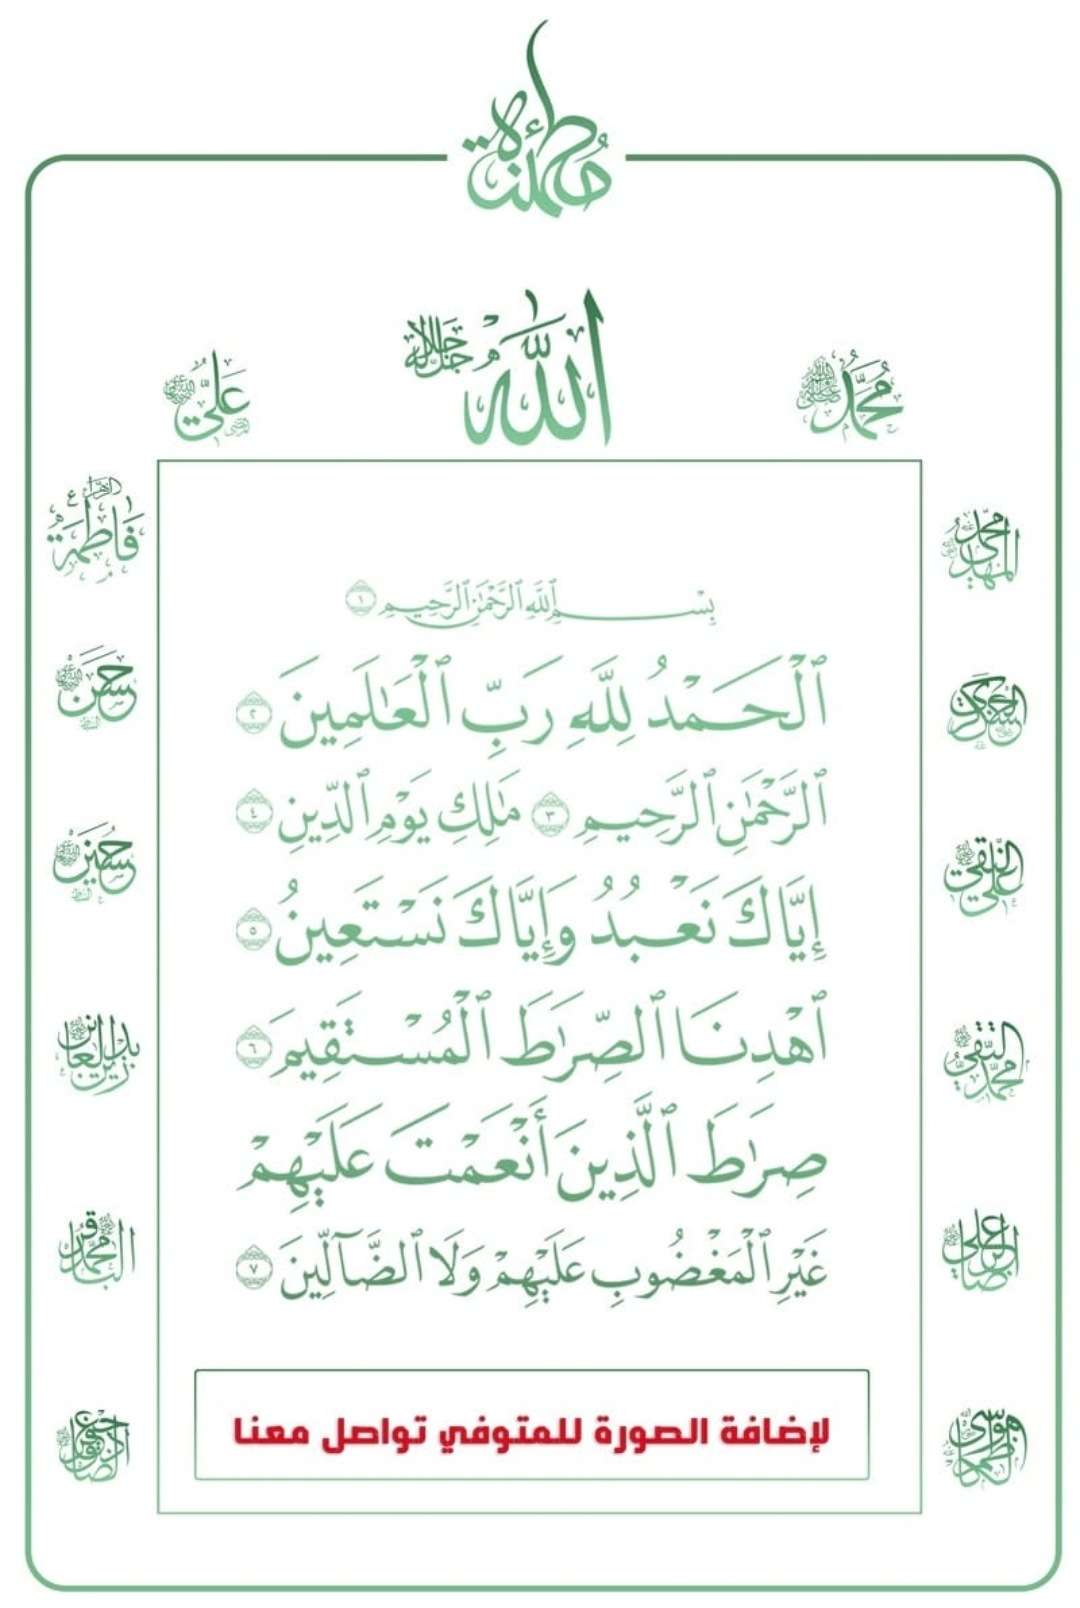 مُطمئنة
ٱللَّهُ جَلَّ جَلَالُهُ
مُحَمَّدٌ ﷺ
عَلِيٌّ
فَاطِمَةُ الزهراء ع
حَسَن
حُسَين
زين العابدين
محمد الباقر
جعفر الصادق
محمد المهدي
العسكري
علي النقي
محمد التقي
علي الرضا
موسى الكاظم
بِسْمِ ٱللَّهِ ٱلرَّحْمَٰنِ ٱلرَّحِيمِ ١
ٱلْحَمْدُ لِلَّهِ رَبِّ ٱلْعَٰلَمِينَ ٢
ٱلرَّحْمَٰنِ ٱلرَّحِيمِ ٣ مَٰلِكِ يَوْمِ ٱلدِّينِ ٤
إِيَّاكَ نَعْبُدُ وَإِيَّاكَ نَسْتَعِينُ ٥
ٱهْدِنَا ٱلصِّرَٰطَ ٱلْمُسْتَقِيمَ ٦
صِرَٰطَ ٱلَّذِينَ أَنْعَمْتَ عَلَيْهِمْ
غَيْرِ ٱلْمَغْضُوبِ عَلَيْهِمْ وَلَا ٱلضَّآلِّينَ ٧
لإضافة الصورة للمتوفي تواصل معنا